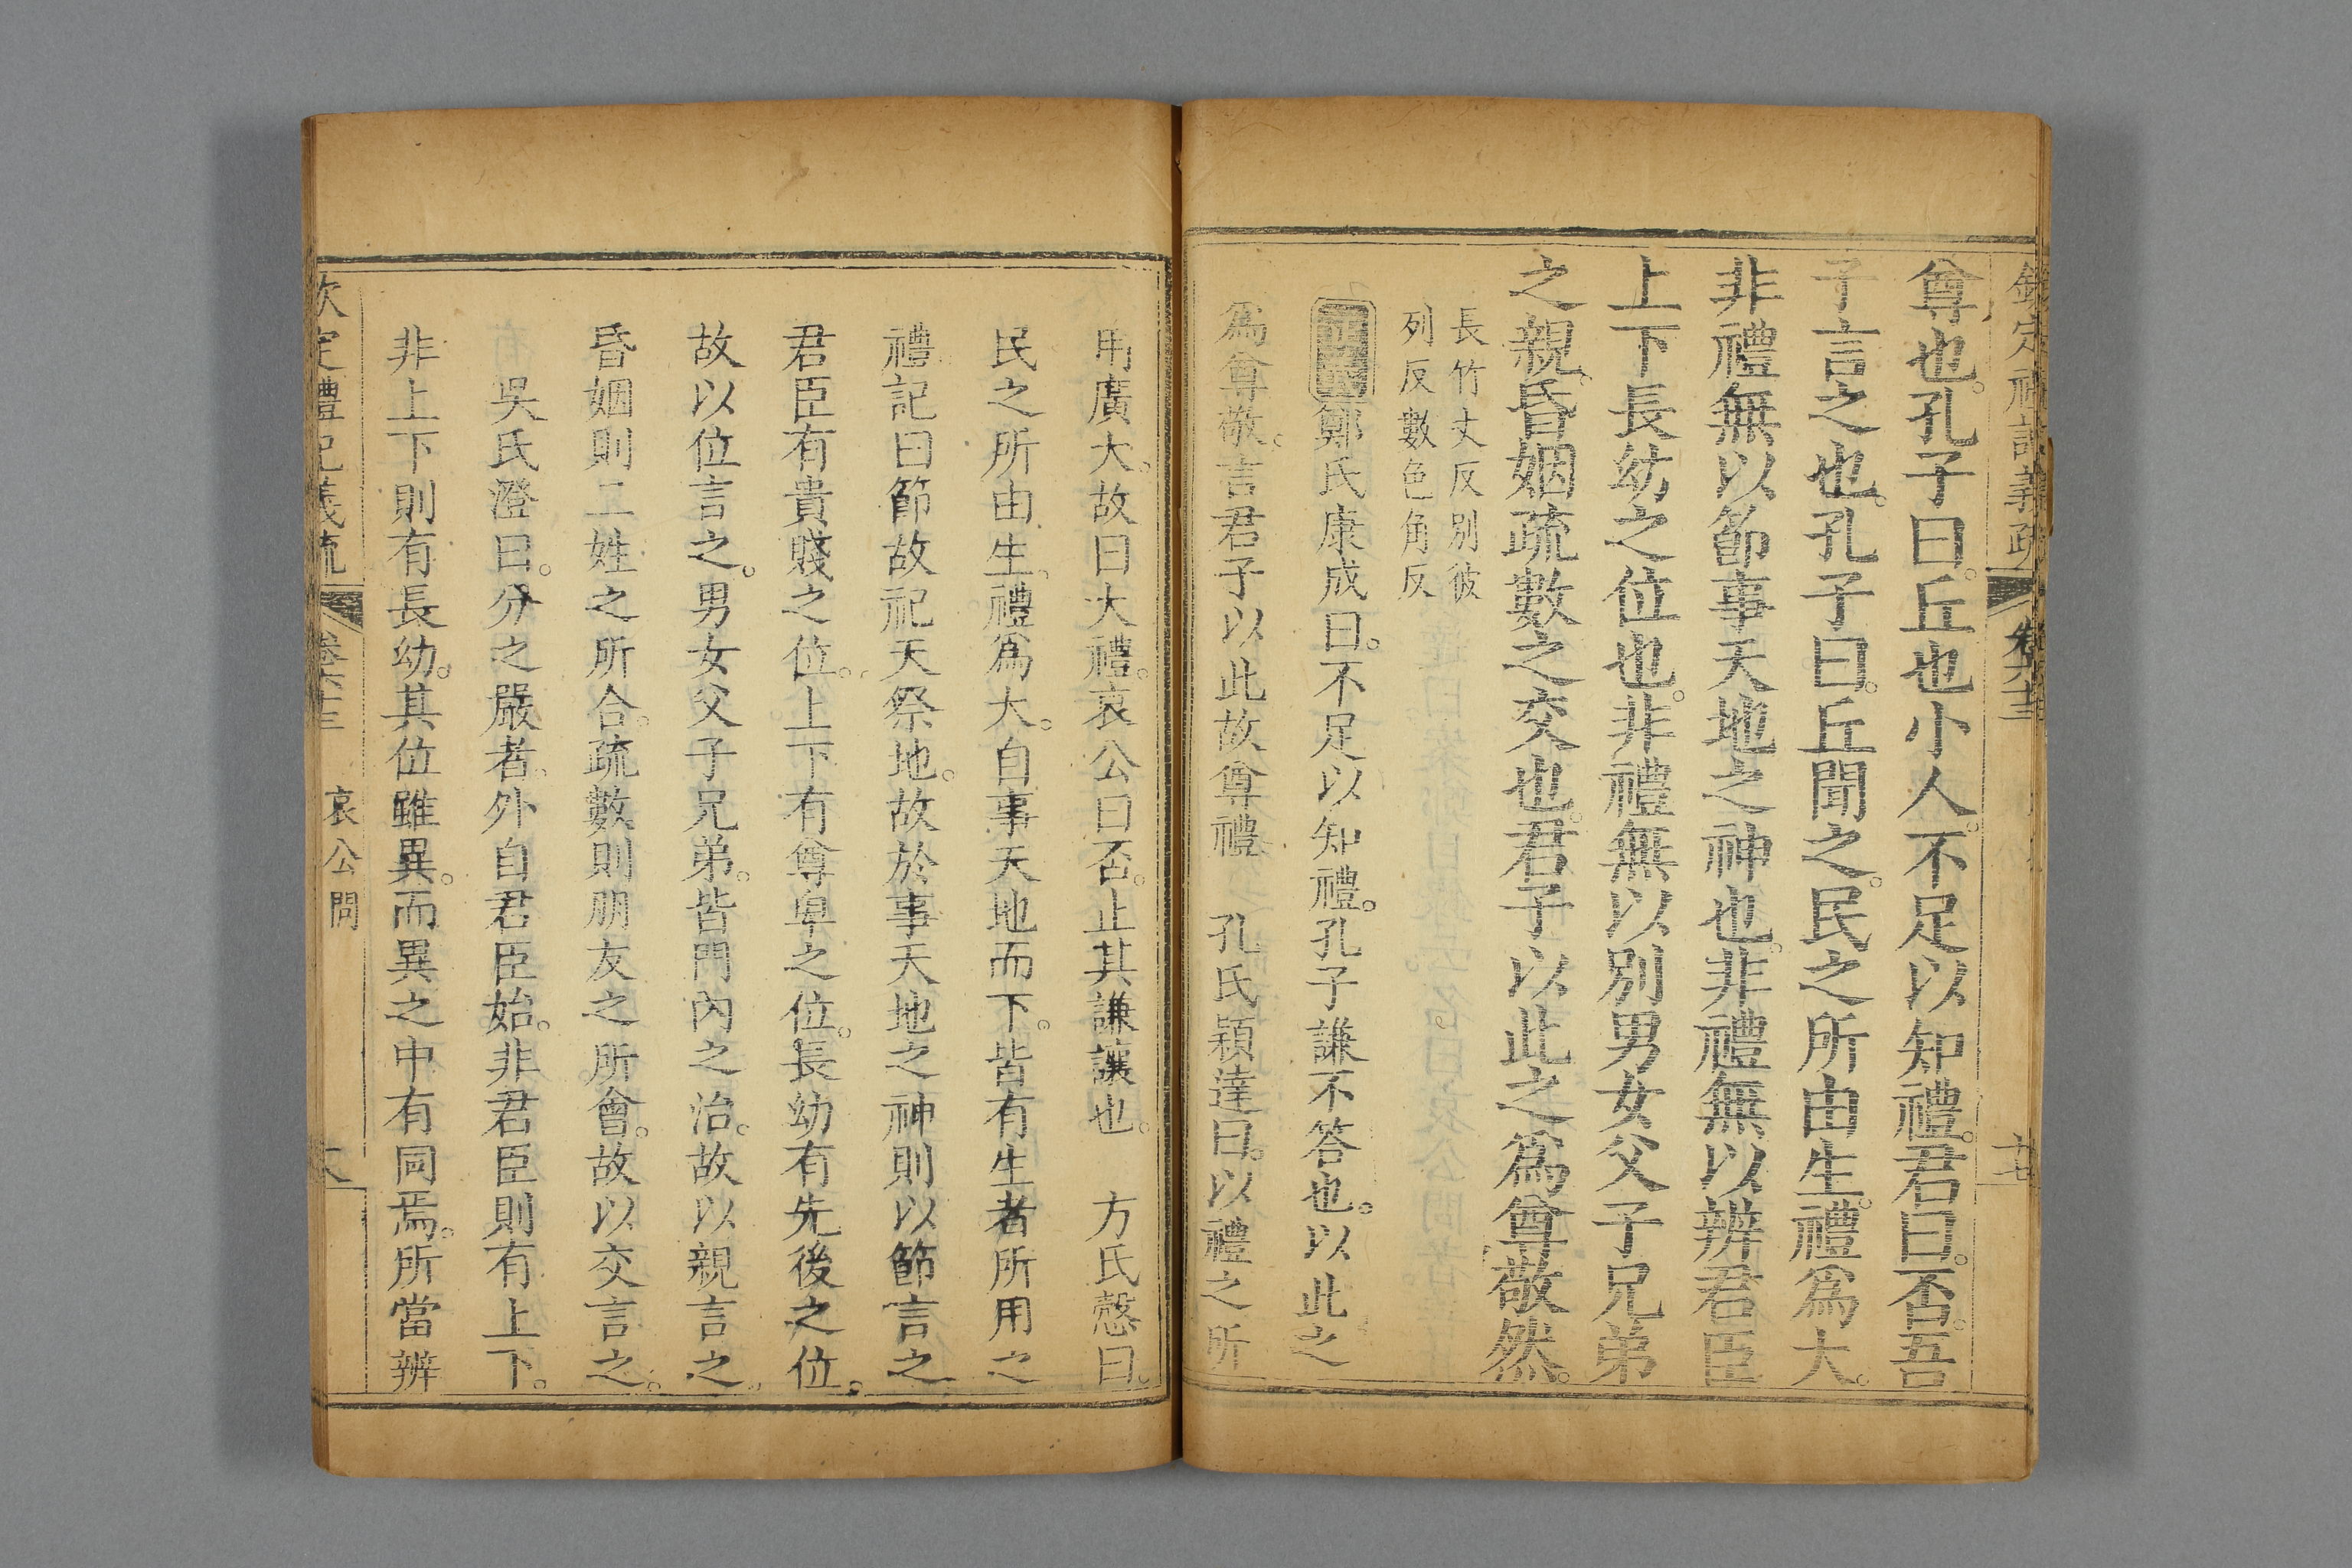 欽定禮記義疏 卷六十三 十七
尊也。孔子曰。丘也小人。不足以知禮。君曰。否。吾
子言之也。孔子曰。丘聞之。民之所由生。禮爲大。
非禮無以節事天地之神也。非禮無以辨君臣
上下長幼之位也。非禮無以別男女父子兄弟
之親。昏姻疏數之交也。君子以此之爲尊敬然。
長竹丈反別彼
列反數色角反
鄭氏康成曰。不足以知禮。孔子謙不答也。以此之
爲尊敬。言君子以此故尊禮 孔氏穎達曰。以禮之所
用廣大。故曰大禮。哀公曰否。止其謙讓也。 方氏慤曰。
民之所由生。禮爲大。自事天地而下。皆有生者所用之
禮記曰節故祀天祭地。故於事天地之神則以節言之
君臣有貴賤之位。上下有尊卑之位。長幼有先後之位。
故以位言之。男女父子兄弟。皆門內之治。故以親言之。
昏姻則二姓之所合。疏數則朋友之所會。故以交言之。
吳氏澄曰。分之嚴者。外自君臣始。非君臣則有上下。
非上下則有長幼。其位雖異。而異之中有同焉。所當辨
欽定禮記義疏 卷六十三 哀公問